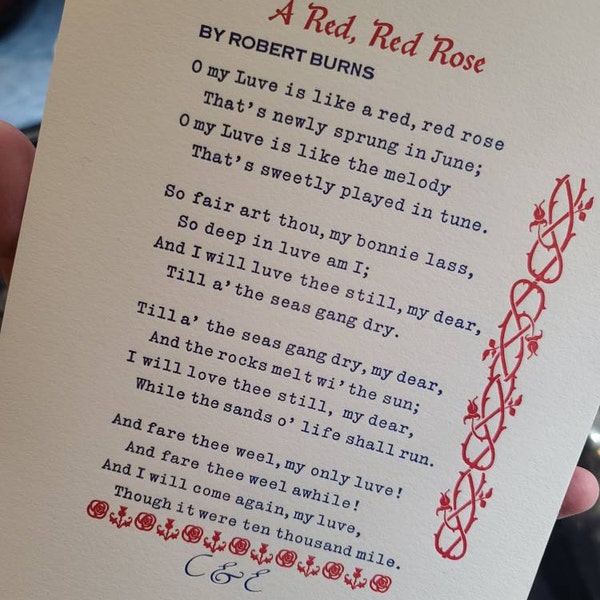 A Red, Red Rose
BY ROBERT BURNS
O my Luve is like a red, red rose
That's newly sprung in June;
O my Luve is like the melody
That's sweetly played in tune.
So fair art thou, my bonnie lass,
So deep in luve am I;
And I will luve thee still, my dear,
Till a'the seas gang dry.
Till a' the seas gang dry, my dear,
And the rocks melt wi' the sun;
I will love thee still, my dear,
While the sands o' life shall run.
And fare thee weel, my only luve!
And fare thee weel awhile!
And I will come again, my luve,
Though it were ten thousand mile.
C & E